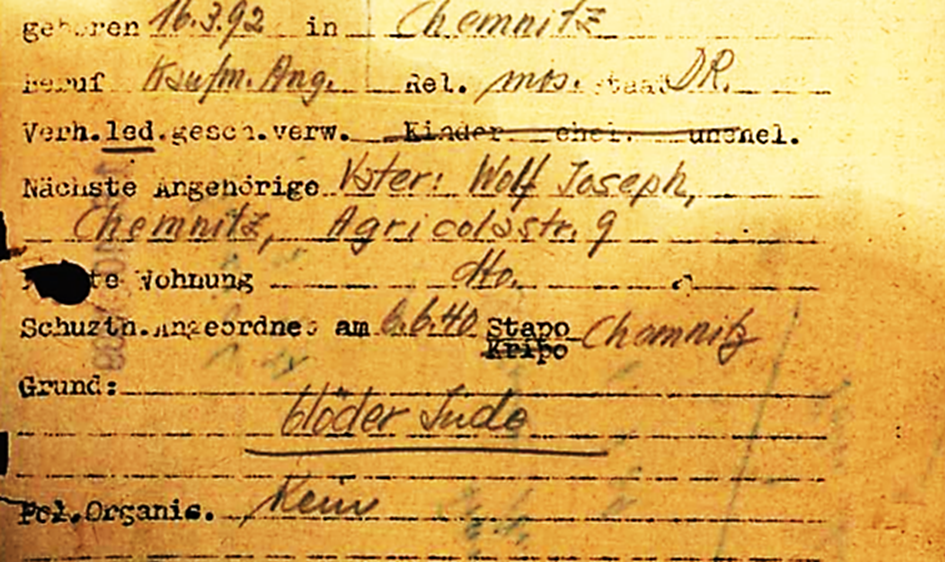 geboren 16.3.92 in Chemnitz
Beruf Kaufm. Ang. Rel. mos. Staat DR.
Verh.led.gesch.verw. Kinder ehel. unehel.
Nächste Angehörige Vater: Wolf Joseph,
Chemnitz, Agricolastr. 9
Wohnung dto.
Schuzth.Angeordnet am 6.6.40 Stapo Chemnitz
Kripo
Grund:
blöder Jude
Pol.Organis. Kein